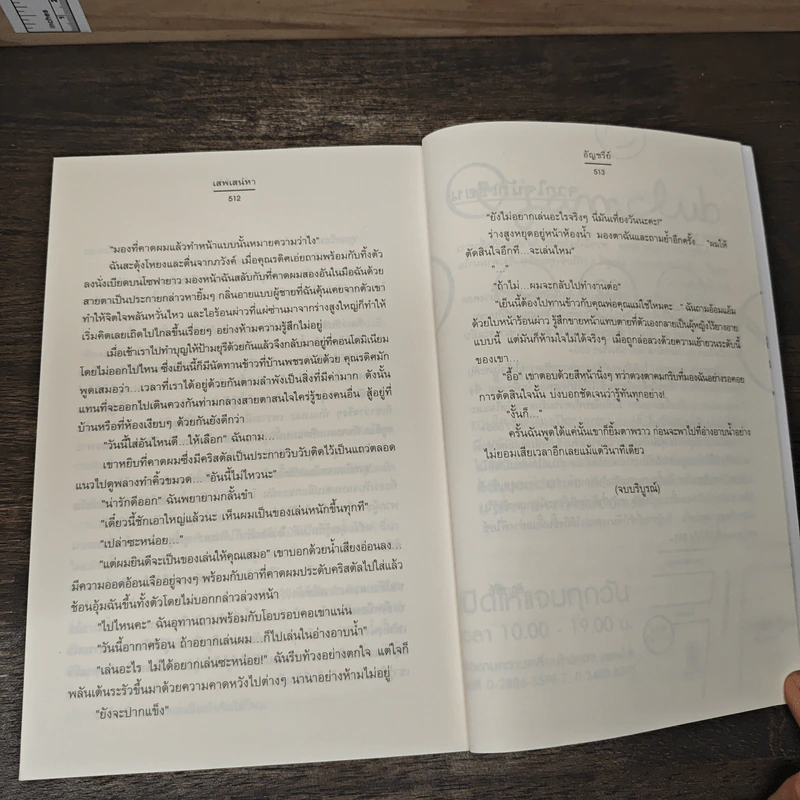 เสพเสน่หา
512
"มองที่คาดผมแล้วทำหน้าแบบนั้นหมายความว่าไง"
ฉันสะดุ้งโหยงและตื่นจากภวังค์ เมื่อคุณรติคเอ่ยถามพร้อมกับทิ้งตัว
ลงนั่งเบียดบนโซฟายาว มองหน้าฉันสลับกับที่คาดผมสองอันในมือฉันด้วย
สายตาเป็นประกายกล่าวหายิ้มๆ กลิ่นอายแบบผู้ชายที่ฉันคุ้นเคยจากตัวเขา
ทำให้จิตใจพลันหวั่นไหว และไอร้อนผ่าวที่แผ่ซ่านมาจากร่างสูงใหญ่ก็ทำให้
เริ่มคิดเลยเถิดไปไกลขึ้นเรื่อยๆ อย่างห้ามความรู้สึกไม่อยู่
เมื่อเช้าเราไปทำบุญให้ป้ามยุรีด้วยกันแล้วจึงกลับมาอยู่ที่คอนโดมิเนียม
โดยไม่ออกไปไหน ซึ่งเย็นนี้ก็มีนัดทานข้าวที่บ้านพชรดนัยด้วย คุณรติคมัก
พูดเสมอว่า...เวลาที่เราได้อยู่ด้วยกันตามลำพังเป็นสิ่งที่มีค่ามาก ดังนั้น
แทนที่จะออกไปเดินควงกันท่ามกลางสายตาสนใจใคร่รู้ของคนอื่น สู้อยู่ที่
บ้านหรือที่ห้องเงียบๆ ด้วยกันยังดีกว่า
"วันนี้ใส่อันไหนดี...ให้เลือก" ฉันถาม...
เขาหยิบที่คาดผมซึ่งมีคริสตัลเป็นประกายวิบวับติดไว้เป็นแถวตลอด
แนวไปดูพลางทำคิ้วขมวด... "อันนี้ไม่ไหวนะ"
"น่ารักดีออก" ฉันพยายามกลั้นขำ
"เดี๋ยวนี้ชักเอาใหญ่แล้วนะ เห็นผมเป็นของเล่นหนักขึ้นทุกที"
"เปล่าซะหน่อย..."
"แต่ผมยินดีจะเป็นของเล่นให้คุณเสมอ" เขาบอกด้วยน้ำเสียงอ่อนลง...
มีความออดอ้อนเจืออยู่จางๆ พร้อมกับเอาที่คาดผมประดับคริสตัลไปใส่แล้ว
ช้อนอุ้มฉันขึ้นทั้งตัวโดยไม่บอกกล่าวล่วงหน้า
"ไปไหนคะ" ฉันอุทานถามพร้อมกับโอบรอบคอเขาแน่น
"วันนี้อากาศร้อน ถ้าอยากเล่นผม...ก็ไปเล่นในอ่างอาบน้ำ"
"เล่นอะไร ไม่ได้อยากเล่นซะหน่อย!" ฉันรีบท้วงอย่างตกใจ แต่ใจก็
พลันเต้นระรัวขึ้นมาด้วยความคาดหวังไปต่างๆ นานาอย่างห้ามไม่อยู่
"ยังจะปากแข็ง"
อัญชรีย์
513
"ยังไม่อยากเล่นอะไรจริงๆ นี่มันเที่ยงวันนะคะ!"
ร่างสูงหยุดอยู่หน้าห้องน้ำ มองตาฉันและถามย้ำอีกครั้ง... "ผมให้
ตัดสินใจอีกที...จะเล่นไหม"
"..."
"ถ้าไม่...ผมจะกลับไปทำงานต่อ"
"เย็นนี้ต้องไปทานข้าวกับคุณพ่อคุณแม่ใช่ไหมคะ..." ฉันถามอ้อมแอ้ม
ด้วยใบหน้าร้อนผ่าว รู้สึกขายหน้าแทบตายที่ตัวเองกลายเป็นผู้หญิงไร้ยางอาย
แบบนี้ แต่มันก็ห้ามใจไม่ได้จริงๆ เมื่อถูกล่อลวงด้วยความเย้ายวนระดับนี้
ของเขา...
"อื้อ" เขาตอบด้วยสีหน้านิ่งๆ ทว่าดวงตาคมกริบที่มองฉันอย่างรอคอย
การตัดสินใจนั้น บ่งบอกชัดเจนว่ารู้ทันทุกอย่าง!
"งั้นก็..."
ครั้นฉันพูดได้แค่นั้นเขาก็ยิ้มตาพราว ก่อนจะพาไปที่อ่างอาบน้ำอย่าง
ไม่ยอมเสียเวลาอีกเลยแม้แต่วินาทีเดียว
(จบบริบูรณ์)